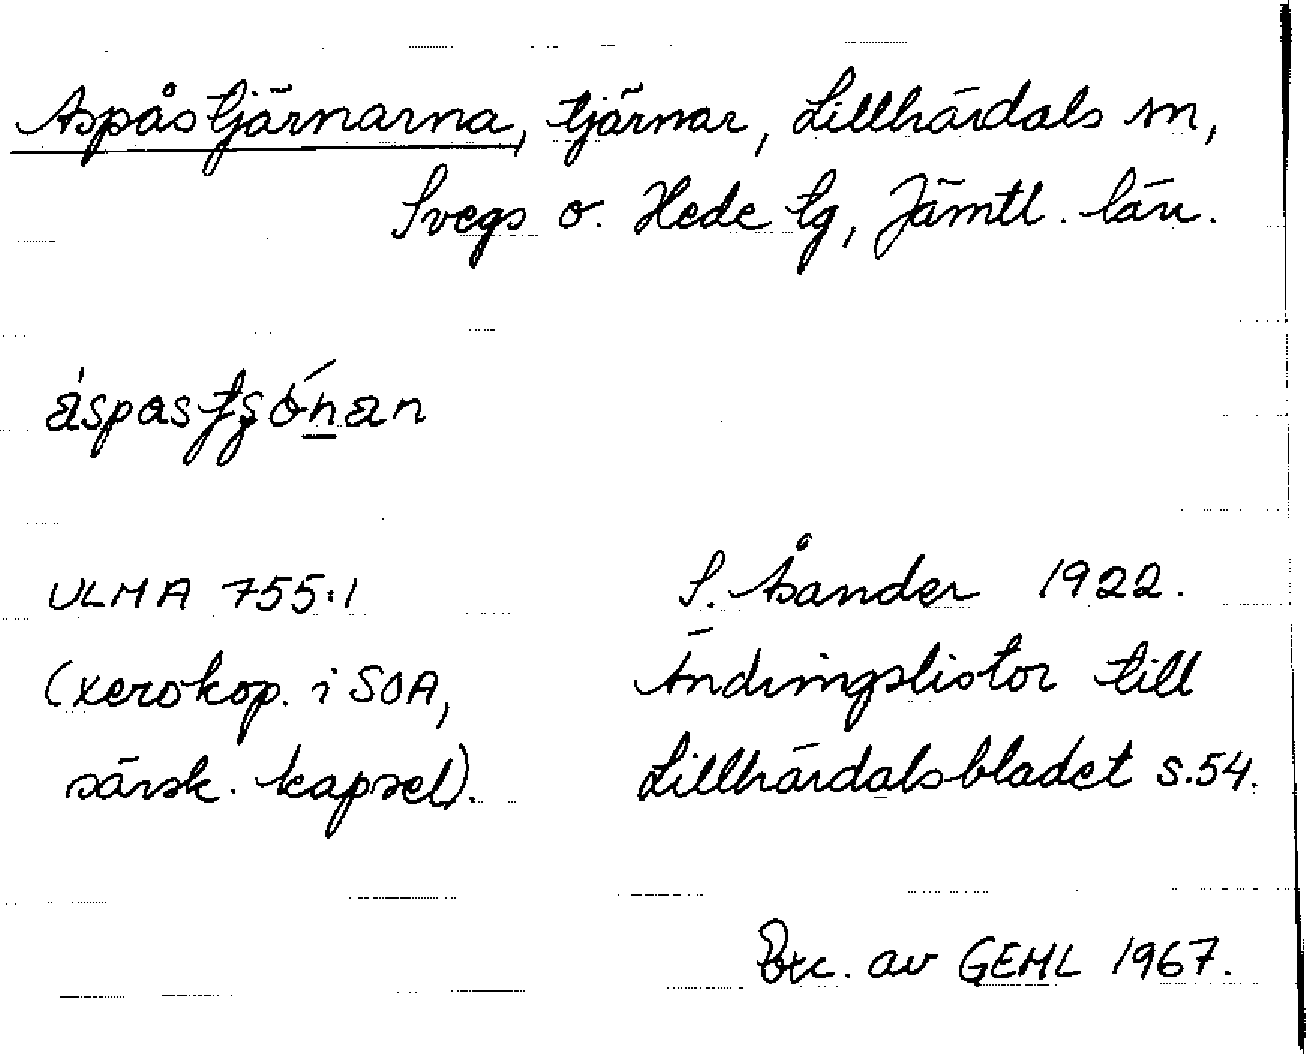 Aspåstjärnarna, tjärnar, Lillhärdals sn,
Svegs o. Hede tg, Jämtl. län.
ULMA 755:1
S. Åsander 1922.
(xerokop. i SOA,
Ändringslistor till
särsk. kapsel).
Lillhärdalsbladet s.54.
Exc. av GEHL 1967.